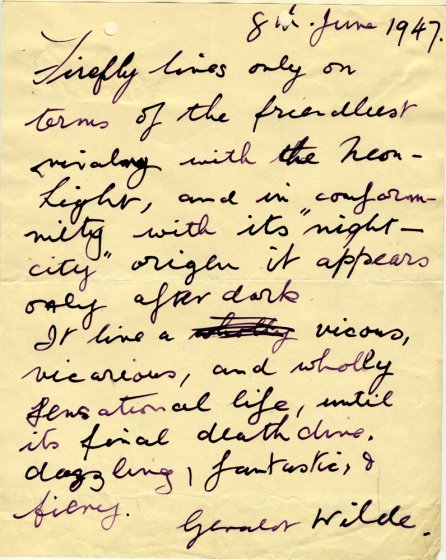 8th. June 1947.
Firefly lives only on
terms of the friendliest
rivalry with the Neon-
Light, and in conform-
mity with its "night-
city" origen it appears
only after dark
It live a wholly vicous,
vicarious, and wholly
sensational life, until
its final death dive.
dazzling, fantastic, &
fiery.
Gerald Wilde.